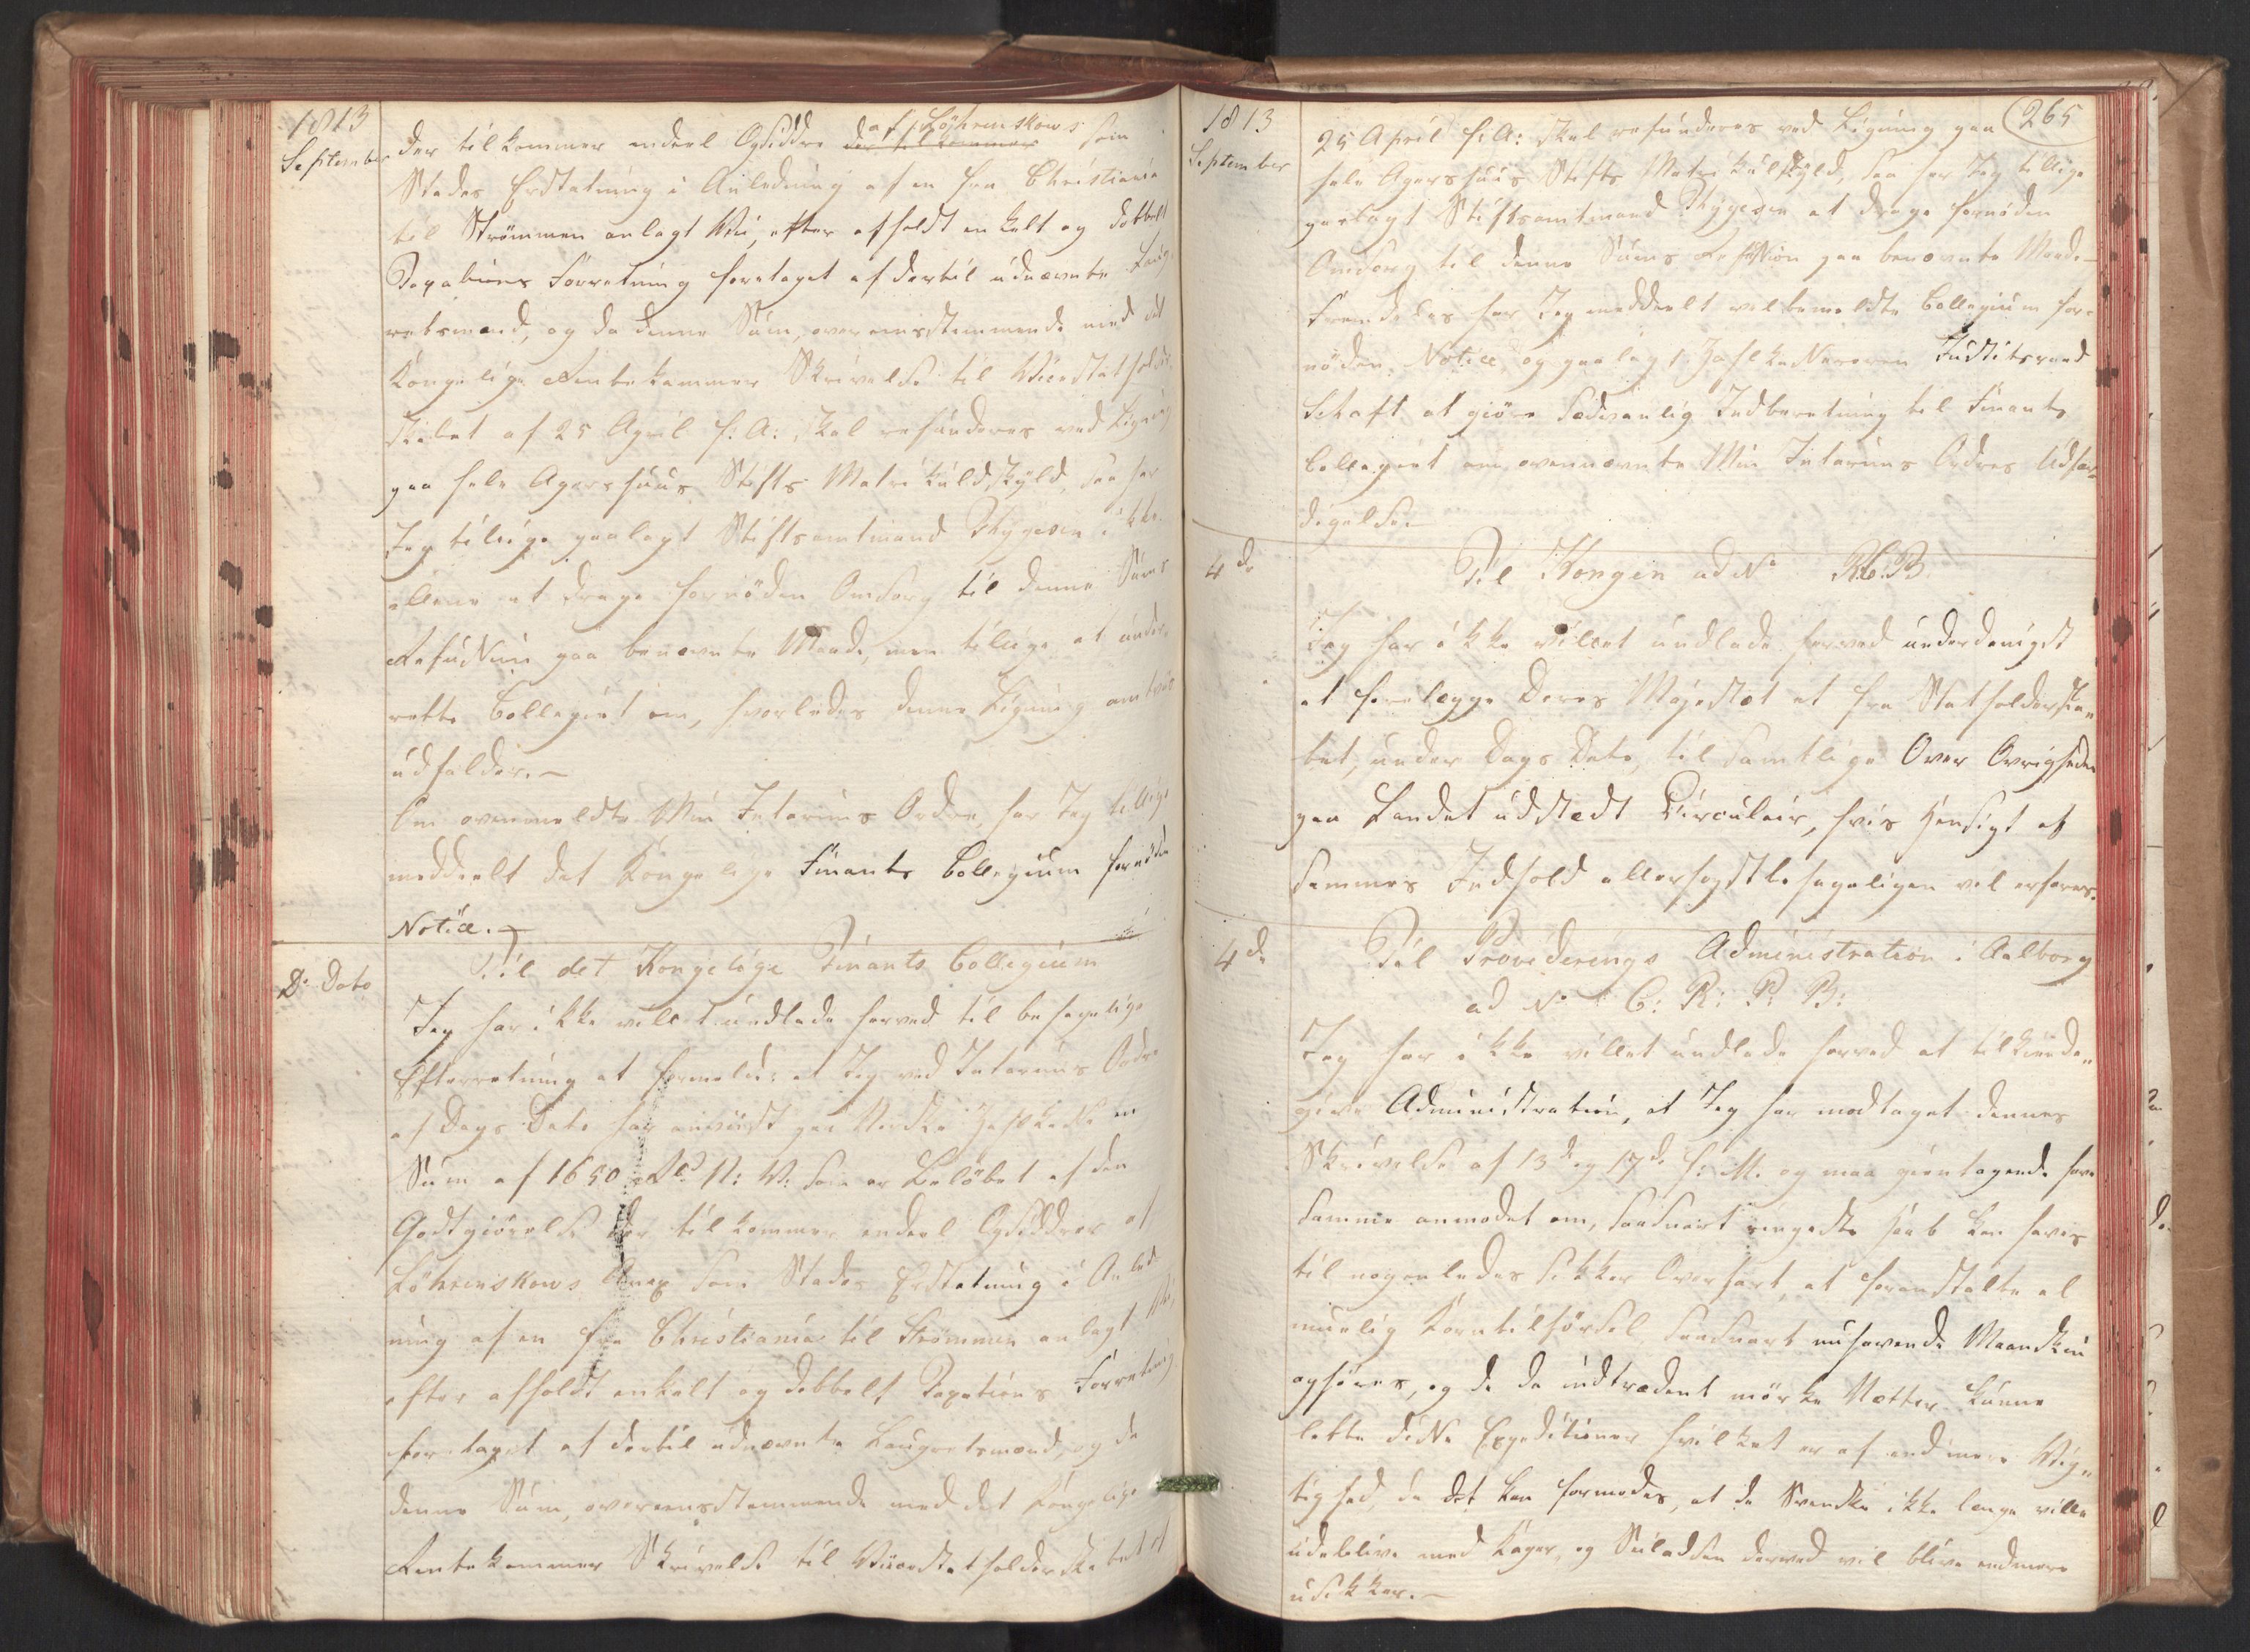 1813
September
der tilkommer endeel Opsiddere der tilkommer af Löhrenskows som
Stades Erstatning i Anledning af en fra Christiania
til Strömmen anlagt Vei, efter afholdt enkelt og dobbelt
Taxations Forretning foretaget af dertil udnævnte Laug-
retsmænd, og da denne Sum, overeensstemmende med det
Kongelige Rentekammer Skrivelse til Vicestatholder-
skabet af 25 April f: A: skal refunderes ved Ligning
paa hele Agershuus Stifts Matriculskyld, saa har
Jeg tillige paalagt Stiftsamtmand Thygeson ikke
allene at drage fornöden Omsorg til denne Sums
Refusion paa benævnte Maade, men tillige at under-
rette Collegiet om, hvorledes denne Ligning omtrent
udfalder.-
Om ovenmeldte Min Interims Ordre, har Jeg tillige
meddeelt det Kongelige Finants Collegium fornöden
Notice.-
D: Dato
Til det Kongelige Finants Collegium
Jeg har ikke villet undlade herved til behagelige
Efterretning at formelde: at Jeg ved Interims Ordre
af Dags Dato har anviist paa Norske Zahlkasse en
Sum af 1650 Rd N: V: som er Belöbet af den
Godtgiörelse der tilkommer endeel Opsiddere af
Löhrenskows Annex som Stades Erstatning i Anled-
ning af en fra Christiania til Strömmen anlagt Vei,
efter afholdt enkelt og dobbelt Taxations Forretning
foretaget af dertil udnævnte Laugretsmænd, og da
denne Sum, overeensstemmende med det Kongelige
Rentekammer Skrivelse til Vicestatholderskabet af
1813
September
265
25 April f: A: skal refunderes ved Ligning paa
hele Agershuus Stifts Matriculskyld, saa har Jeg tillige
paalagt Stiftsamtmand Thygeson at drage fornöden
Omsorg til denne Sums Refusion paa benævnte Maade-
Fremdeles har Jeg meddeelt velbemeldte Collegium for-
nöden Notice, og paalagt Zahlkasserer Justitsraad
Schaft at giöre sædvanlig Indberetning til Finants
Collegiet om ovennævnte Min Interims Ordres Udfær-
digelse.-
4de
Til Kongen ad No R.C.B
Jeg har ikke villet undlade herved underdanigst
at forelægge Deres Majestæt et fra Statholderska-
bet, under Dags Dato, til samtlige Over Øvrigheder
paa Landet udstedt Circulair, hvis Hensigt af
sammes Indhold allerhøystbehageligen vil erfares.
4de
Til Providerings Administration i Aalborg
ad No C: R: P: B:
Jeg har ikke villet undlade herved at tilkiende-
give Administration, at Jeg har modtaget dennes
Skrivelse af 13de og 17de f: M. og maa gientagende have
samme anmodet om, saasnart ringeste Haab kan haves
til nogenledes sikker Overfart, at foranstalte al
muelig Korntilförsel saasnart nuhavende Maaneskin
ophörer, og de da indtrædende mörke Nætter kunne
lette disse Expeditioner hvilket er af end mere Vig-
tighed, da det kan formodes, at de Svenske ikke længe ville
udeblive med Kapere, og Seiladsen derved vil blive endmere
usikker.-